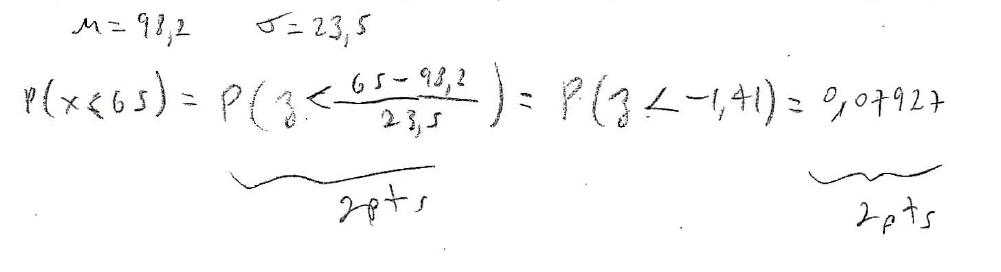 μ = 98,2 σ = 23,5
P(x≤65) = P(z < (65-98,2)/23,5) = P(z < -1,41) = 0,07927
2pts 2pts